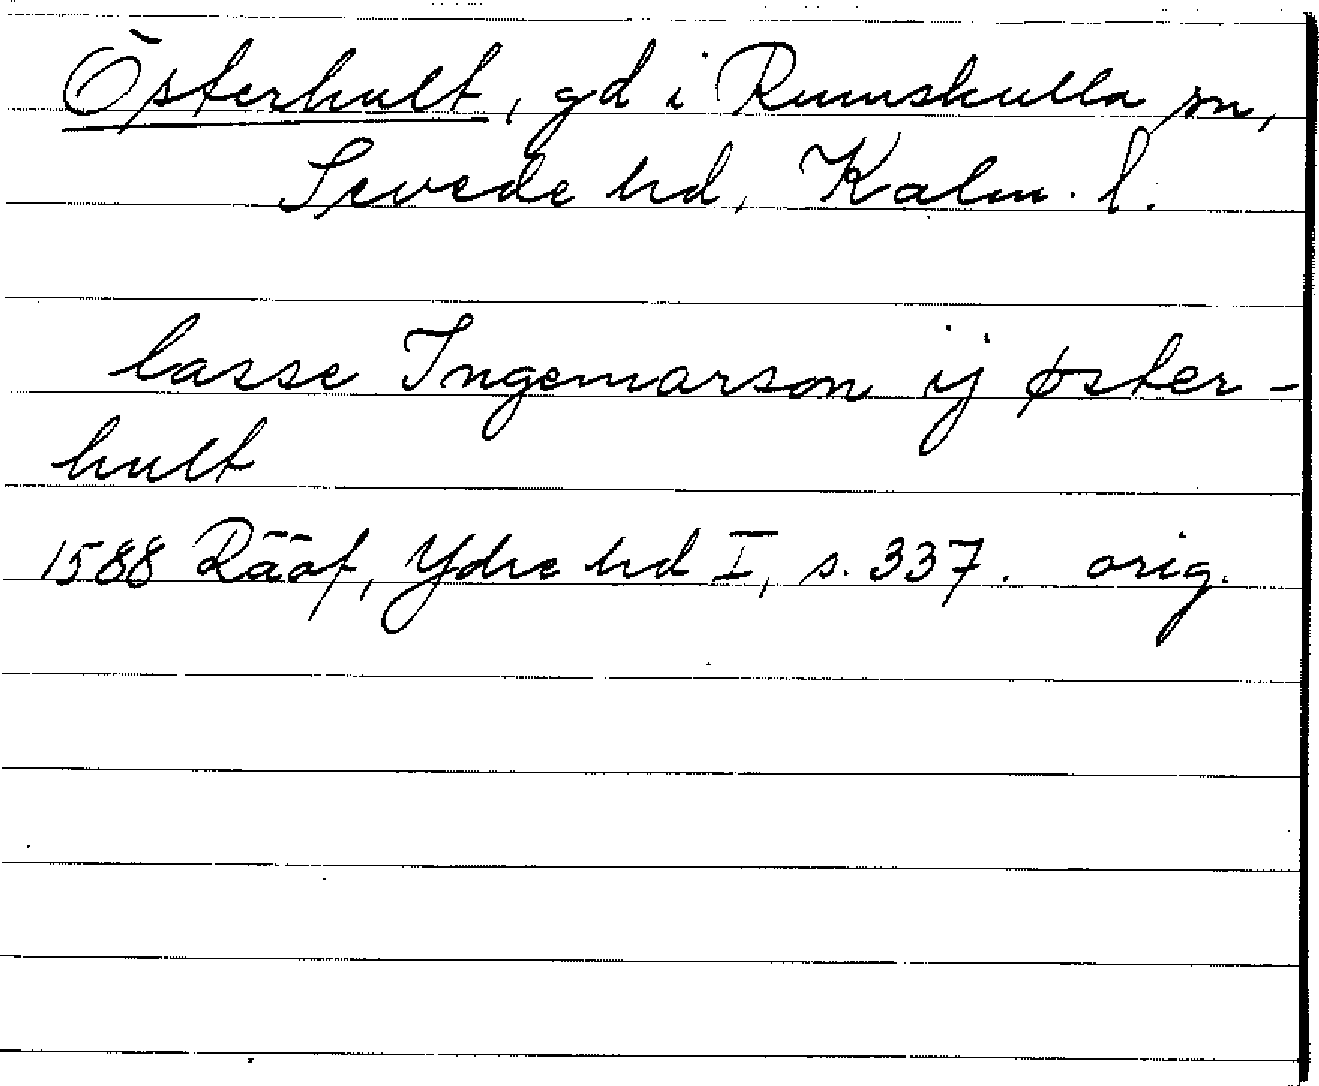 Österhult, gd i Rumskulla sn,
Sevede hd, Kalm. l.
lasse Ingemarson ij øster-
hult
1588 Rääf, Ydre hd I, s. 337. orig.